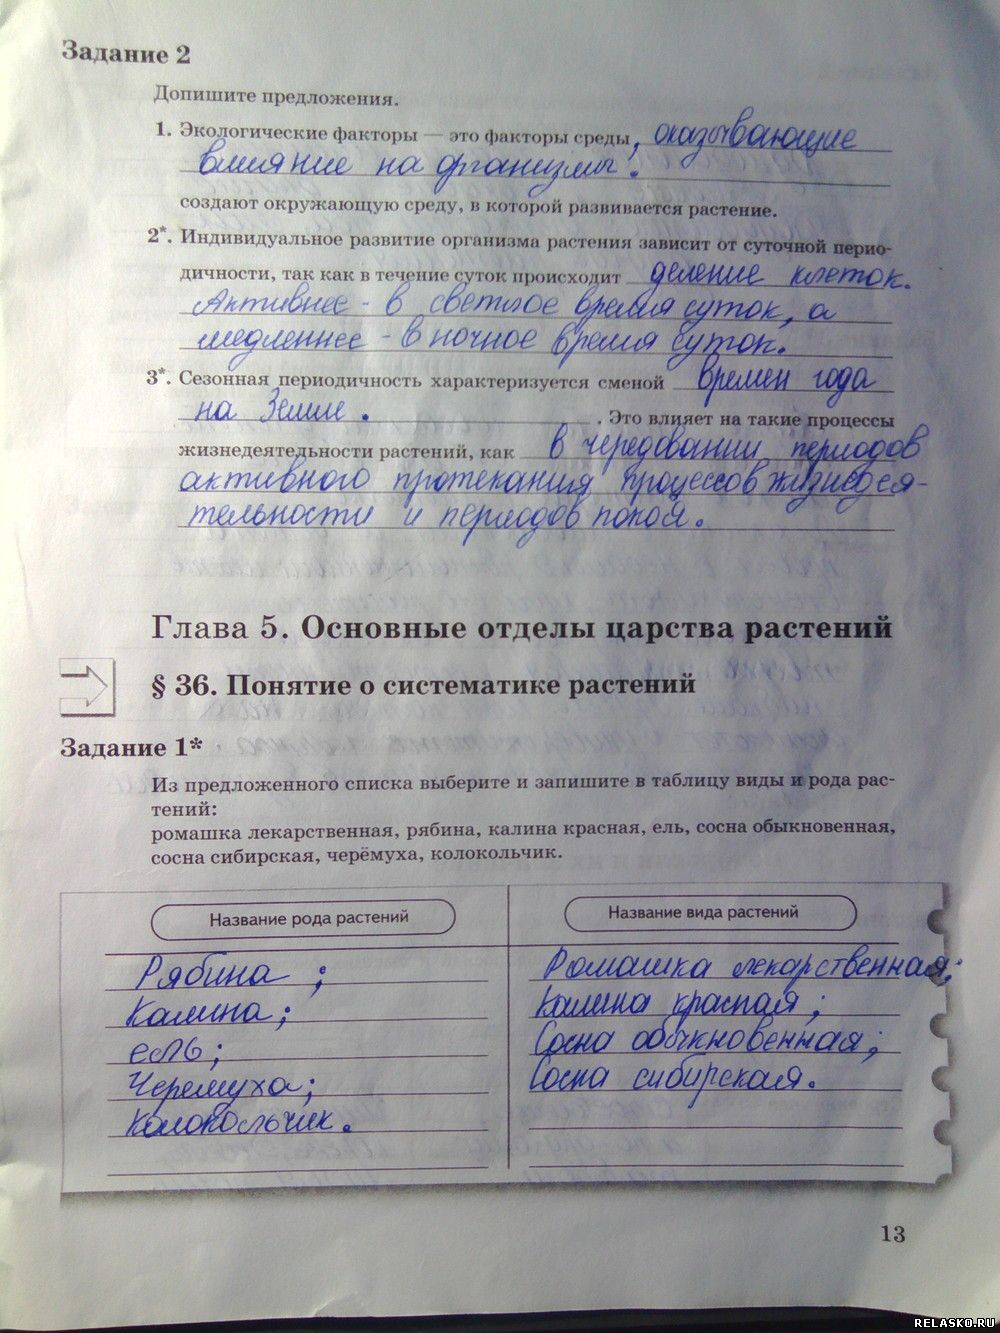 Задание 2
Допишите предложения.
1. Экологические факторы — это факторы среды, оказывающие
влияние на организмы.
создают окружающую среду, в которой развивается растение.
2*. Индивидуальное развитие организма растения зависит от суточной перио-
дичности, так как в течение суток происходит деление клеток.
Активнее - в светлое время суток, а
медленнее - в ночное время суток.
3*. Сезонная периодичность характеризуется сменой времен года
на Земле. . Это влияет на такие процессы
жизнедеятельности растений, как в чередовании периодов
активного протекания процессов жизнедея-
тельности и периодов покоя.
Глава 5. Основные отделы царства растений
§ 36. Понятие о систематике растений
Задание 1*
Из предложенного списка выберите и запишите в таблицу виды и рода рас-
тений:
ромашка лекарственная, рябина, калина красная, ель, сосна обыкновенная,
сосна сибирская, черёмуха, колокольчик.
Название рода растений
Рябина ;
Калина;
ель;
Черемуха;
Колокольчик.
Название вида растений
Ромашка лекарственная;
Калина красная;
Сосна обыкновенная;
Сосна сибирская.
13
RELASKO.RU